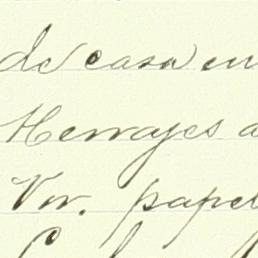 de casa en
Herrajes a
Vv. papel